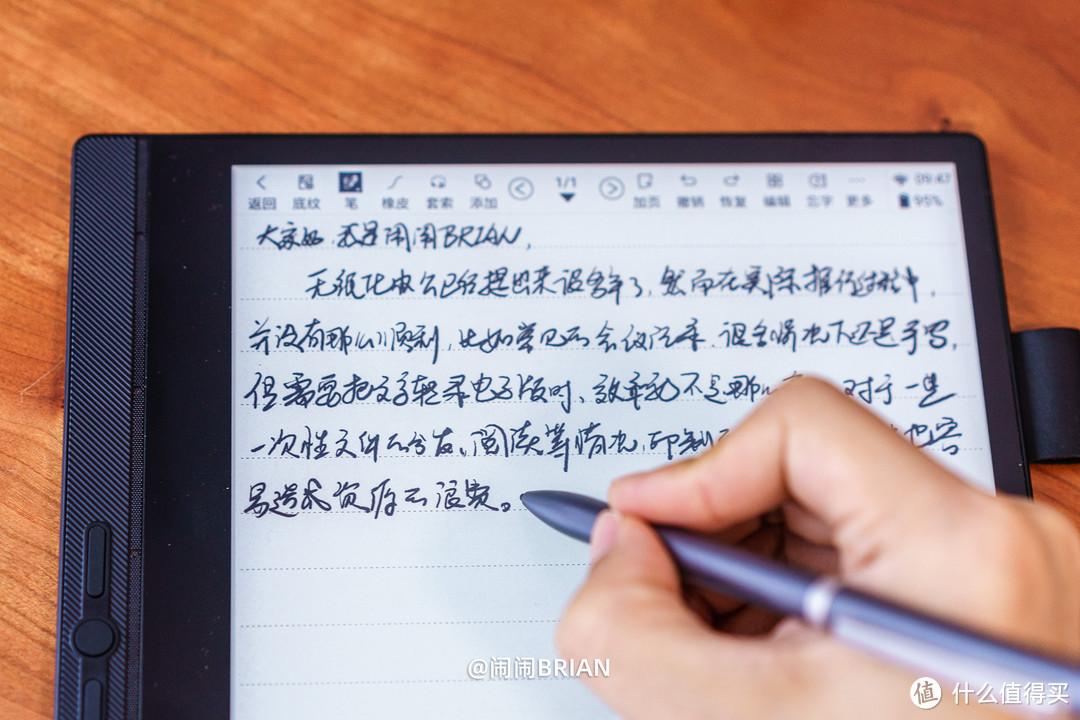 返回 底纹 笔 橡皮 套索 添加 1/1 加页 撤销 恢复 编辑 忘字 更多 09:47 95%
大家好,我是闹闹BRIAN,
无纸化办公已经提出来很多年了,然而在实际推行过程中,
并没有那么顺利,比如常见的会议记录,很多情况下还是手写,
但需要把文字转录电子版时,效率就不是那么 对于一些
一次性文件的分发、阅读等情况,印制 也容
易造成资源的浪费。
@闹闹BRIAN
值 什么值得买